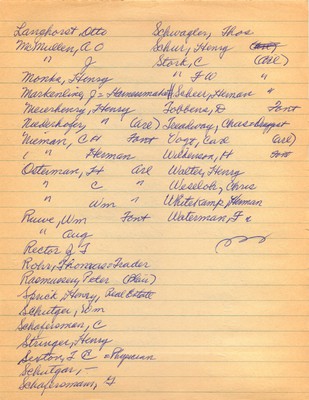 Langhorst Otto
McMullen, A O
" J
Monke, Henry
Markenline, J = Homesmaker
Meierhenry, Henry
Niederhofer, " Arl)
Nieman, C H Font
" Herman
Osterman, F H Arl
" C "
" Wm "
Ruwe, Wm Font
" Aug
Rector J F
Rohr, Thomas = Trader
Rasmussen, Peter (Blair)
Spruck Henry, Real Estate
Schutger, Wm
Schafersman, C
Stringer, Henry
Sexton, F C = Physician
Schutgar, —
Schafersman, G
Schwagler, Thos
Schur, Henry
Stork, C (Arl)
" F W "
Scheer, Herman "
Tobbens, D Font
Treadway, Chas = Druggist
Vogt, Carl Arl)
Wilkerson, H Font
Walter, Henry
Weseloh, Chris
Whitekamp, Herman
Waterman, F